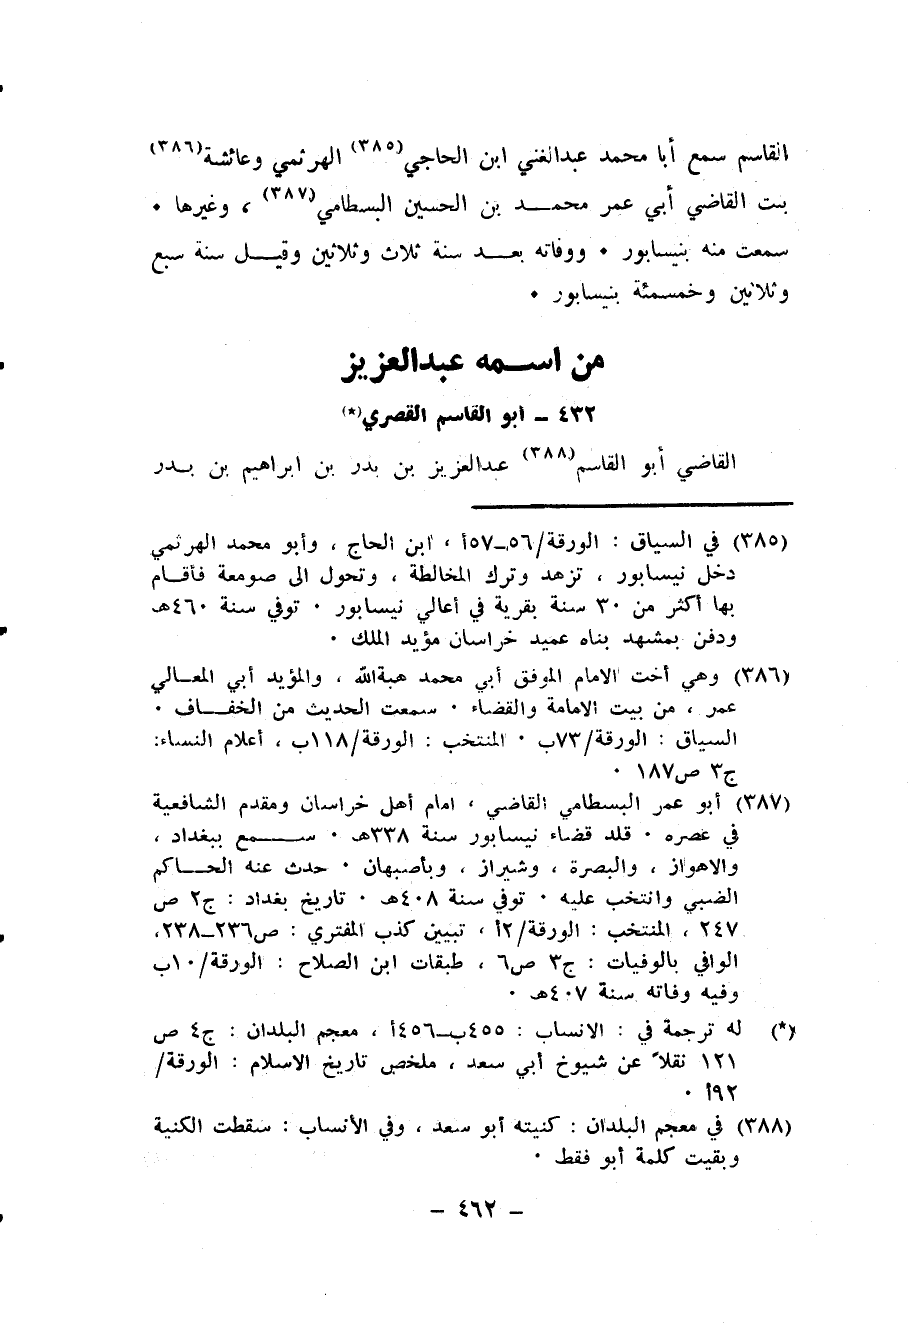 القاسم سمع أبا محمد عبدالغني ابن الحاجي(٣٨٥) الهرثمي وعائشة(٣٨٦)
بنت القاضي أبي عمر محمـــد بن الحسين البسطامي(٣٨٧) ، وغيرها ٠
سمعت منه بنيسابور ٠ ووفاته بعــد سنة ثلاث وثلاثين وقيــل سنة سبع
وثلاثين وخمسمئة بنيسابور ٠
من اســمه عبدالعزيز
٤٣٢ ـ ابو القاسم القصري(*)
القاضي أبو القاسم(٣٨٨) عبدالعزيز بن بدر بن ابراهيم بن بــدر
(٣٨٥) في السياق : الورقة/٥٦ــ٥٧أ ، ابن الحاج ، وأبو محمد الهرثمي
دخل نيسابور ، تزهد وترك المخالطة ، وتحول الى صومعة فأقــام
بها أكثر من ٣٠ سنة بقرية في أعالي نيسابور ٠ توفي سنة ٤٦٠هـ
ودفن بمشهد بناه عميد خراسان مؤيد الملك ٠
(٣٨٦) وهي أخت الامام الموفق أبي محمد هبةالله ، والمؤيد أبي المعــالي
عمر ، من بيت الامامة والقضاء ٠ سمعت الحديث من الخفــاف ٠
السياق : الورقة/٧٣ب ٠ المنتخب : الورقة/١١٨ب ، أعلام النساء:
ج٣ ص١٨٧ ٠
(٣٨٧) أبو عمر البسطامي القاضي ، امام أهل خراسان ومقدم الشافعية
في عصره ٠ قلد قضاء نيسابور سنة ٣٣٨هـ ٠ ســـمع ببغداد ،
والاهواز ، والبصرة ، وشيراز ، وبأصبهان ٠ حدث عنه الحــاكم
الضبي وانتخب عليه ٠ توفي سنة ٤٠٨هـ ٠ تاريخ بغداد : ج٢ ص
٢٤٧ ، المنتخب : الورقة/٢أ ، تبيين كذب المفتري : ص٢٣٦ــ٢٣٨،
الوافي بالوفيات : ج٣ ص٦ ، طبقات ابن الصلاح : الورقة/١٠ب
وفيه وفاته سنة ٤٠٧هـ ٠
(*) له ترجمة في : الانساب : ٤٥٥بــ٤٥٦أ ، معجم البلدان : ج٤ ص
١٢١ نقلاً عن شيوخ أبي سعد ، ملخص تاريخ الاسلام : الورقة/
٩٢أ ٠
(٣٨٨) في معجم البلدان : كنيته أبو سعد ، وفي الأنساب : سقطت الكنية
وبقيت كلمة أبو فقط ٠
ـ ٤٦٢ ـ